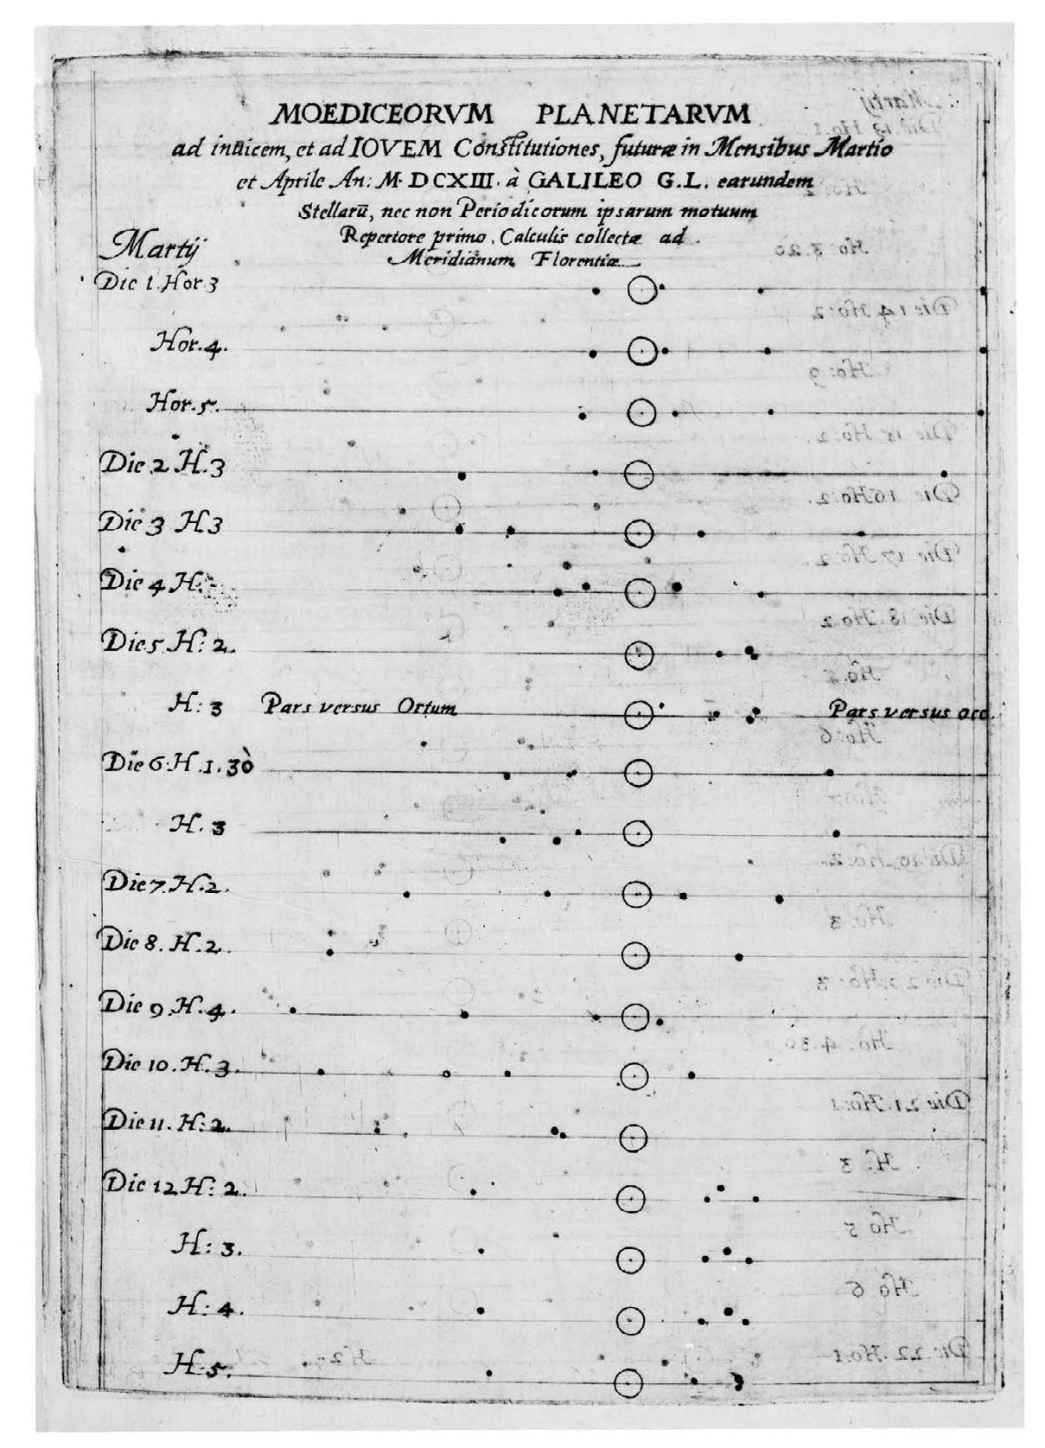 MOEDICEORVM PLANETARVM
ad inuicem, et ad IOVEM Constitutiones, futuræ in Mensibus Martio
et Aprile An: M·DCXIII. à GALILEO G.L. earundem
Stellarū, nec non Periodicorum ipsarum motuum
Repertore primo. Calculis collectæ ad
Meridianum Florentiæ
Martij
Die 1. Hor 3
Hor. 4.
Hor. 5.
Die 2 H. 3
Die 3 H3
Die 4 H.
Die 5 H: 2.
H: 3 Pars versus Ortum Pars versus occ.
Die 6 H. 1. 30
H. 3
Die 7. H. 2.
Die 8. H. 2.
Die 9. H. 4.
Die 10. H. 3.
Die 11. H: 2.
Die 12 H: 2.
H: 3.
H: 4.
H. 5.